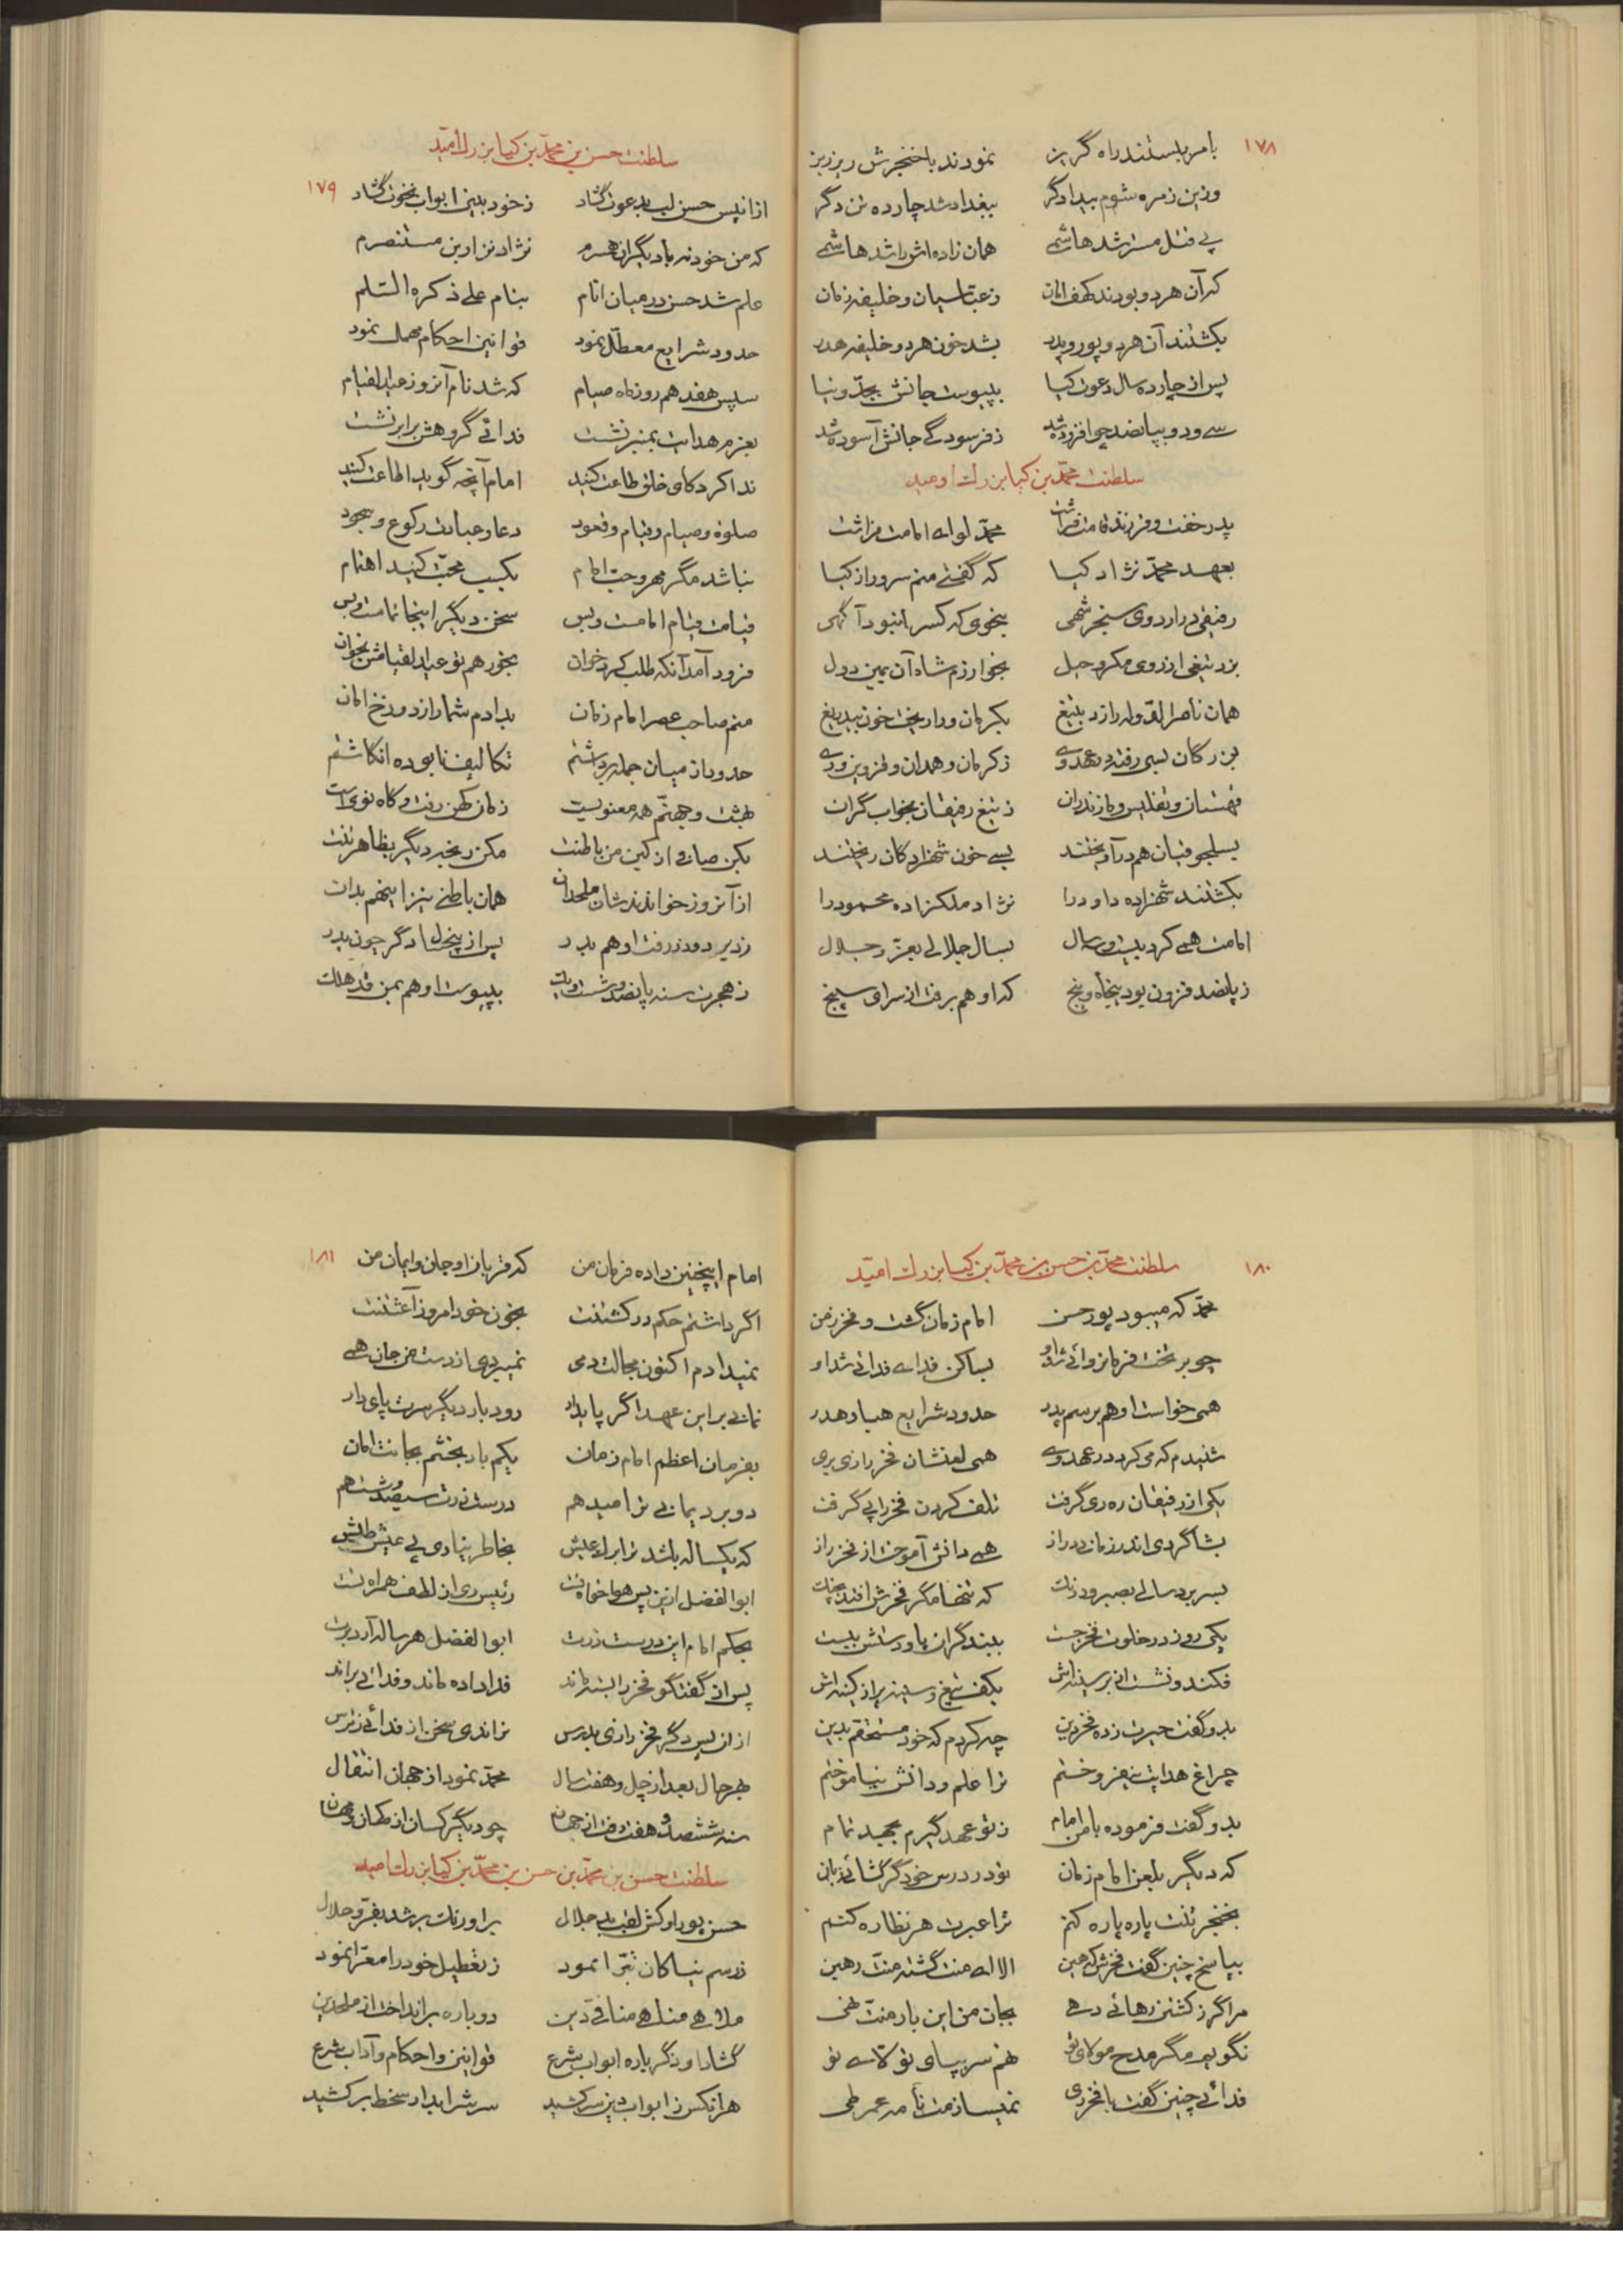 ۱۷۸
بامر ببستند راه گریز نمودند با خنجرش ریز ریز
وزین زمره شوم بیدادگر ببغداد شد چارده تن دگر
پی قتل مسترشد هاشمی همان زاده‌اش راشد هاشمی
که آن هر دو بودند کهف امان ز عباسیان و خلیفه زمان
بکشتند آن هر دو پور و پدر بشد خون هر دو خلیفه هدر
پس از چارده سال دعوت کیا بپیوست جانش بجد و نیا
سی و دو بپانصد چو افزوده شد ز فرسودگی جانش آسوده شد
سلطنت محمد بن کیا بزرک اومید
پدر خفت و فرزند قامت فراشت محمد لوای امامت فراشت
بعهد محمد نژاد کیا که گفتی منم سرور از کیا
رفیقی در اردوی سنجر شهی بخوی که کس را نبود آگهی
بزد تیغی از روی مکر و حیل بخوارزم شاه آن یمین دول
همان ناصرالدوله را زد بتیغ بکرمان و را ریخت خون بیدریغ
بزرگان بسی رفت در عهد وی ز کرمان و همدان و قزوین و ری
قهستان و تفلیس و مازندران ز تیغ رفیقان بخواب گران
بسلجوقیان هم در آویختند بسی خون شهزادگان ریختند
بکشتند شهزاده داود را نژاد ملکزاده محمود را
امامت همی کرد بیست و سال بسال جلالی بعز و جلال
ز پانصد فزون بود پنجاه و پنج که او هم برفت از سرای سپنج
سلطنت حسن بن محمد بن کیا بزرک امید
۱۷۹
از آنپس حسن لب بدعوت گشاد ز خود بینی ابواب نخوت گشاد
که من خود نه با دیگران همسرم نژاد نزار بن مستنصرم
علم شد حسن در میان انام بنام علی ذکره السلم
حدود شرایع معطل نمود قوانین احکام مهمل نمود
سپس هفدهم روز ماه صیام که شد نام آنروز عید القیام
بعزم هدایت بمنبر نشست فدائی گروهش برابر نشست
ندا کرد کای خلق طاعت کنید امام آنچه گوید اطاعت کنید
صلوة و صیام و قیام و قعود دعا و عبادت رکوع و سجود
نباشد مگر مهر و حب امام بکسب محبت کنید اهتمام
قیامت قیام امامست و بس سخن دیگر اینجا تمامت و بس
فرود آمد آنکه طلب کرد خوان بخور هم تو عید القیامش بخوان
منم صاحب عصر امام زمان بدادم شما را ز دوزخ امان
حدود از میان جمله برداشتم تکالیف نابوده انگاشتم
بهشت و جهنم همه معنویست زمان کهن رفت و گاه نویست
بکن صافی از کین من باطنت مکن رنجه دیگر بظاهر تنت
از آنروز خواندندشان ملحدان همان باطنی نیز اینهم بدان
ز دیر دو در رفت او هم بدر پس از پنجسال دگر چون پدر
ز هجرت سنه پانصد و شصت و یک بپیوست او هم بمن قد هلک
۱۸۰
سلطنت محمد بن حسن بن محمد بن کیا بزرک امید
محمد که میبود پور حسن امام زمان گشت و فخر زمن
چو بر تخت فرمانروائی شد او بسا کس فدای فدائی شد او
همی خواست او هم برسم پدر حدود شرایع هبا و هدر
شنیدم که می کرد در عهد وی همی لعنشان فخر رازی بری
یکی از رفیقان ره ری گرفت تلف کردن فخر را پی گرفت
بشاگردی اندر زمان دراز همی دانش آموخت از فخر راز
بسر برد سالی بصبر و درنک که تنها مگر فخرش افتد بچنک
یکی روز در خلوت فخر جست ببند گران پا و دستش ببست
فکند و نشست از بر سینه‌اش بکف تیغ و سینه پر از کینه‌اش
بدو گفت حیرت زده فخر دین چه کردم که خود مستحقم بدین
چراغ هدایت بیفروختم ترا علم و دانش بیاموختم
بدو گفت فرموده با من امام ز تو عهد گیرم بجهد تمام
که دیگر بلعن امام زمان تو در درس خود گر گشائی زبان
بخنجر تنت پاره پاره کنم ترا عبرت هر نظاره کنم
بپاسخ چنین گفت فخرش کهین الا ای منت گشته منت رهین
مرا گر ز کشتن رهائی دهی بجان من این بار منت نهی
نگویم مگر مدح مولای تو نهم سر بپای تو کالای تو
فدائی چنین گفت با فخر ری نمیسازمت نامه عمر طی
۱۸۱
امام اینچنین داده فرمان من که قربان او جان و ایمان من
اگر داشتم حکم در کشتنت بخون خود امروز آغشتنت
نمیدادم اکنون مجالت دمی نمیبردی از دست من جان همی
نمانی بر این عهد اگر پایدار رود بار دیگر سرت پای دار
بفرمان اعظم امام زمان یکم بار بخشم بجانت امان
دو برد یمانی ترا میدهم درست زرت سیصد و شصت هم
که یکساله باشد ترا برای عیش بخاطر نیاری پی عیش طیش
ابوالفضل ازین پس هوا خواه تست رئیس ری از لطف همراه تست
بحکم امام این درست زرت ابوالفضل هر ساله آرد برت
پس از گفتگو فخر را بسته ماند فدا داده ماند و فدائی براند
از آن پس دگر فخر رازی بدرس نراندی سخن از فدائی ز ترس
بهر حال بعد از چل و هفت سال محمد نمود از جهان انتقال
سنه ششصد و هفت رفت از جهان چو دیگر کسان از کهان و مهان
سلطنت حسن بن محمد بن حسن بن محمد بن کیا بزرک امید
حسن پور او کش لقب بد جلال براورنک بر شد بفر و جلال
ز رسم نیاکان تبرا نمود ز تعطیل خود را معرا نمود
ملاهی مناهی منافی دین دوباره برانداخت از ملحدین
گشاد او دگر باره ابواب شرع قوانین و احکام و آداب شرع
هر آنکس ز ابواب دین سر کشید سرش را بدار سخط بر کشید